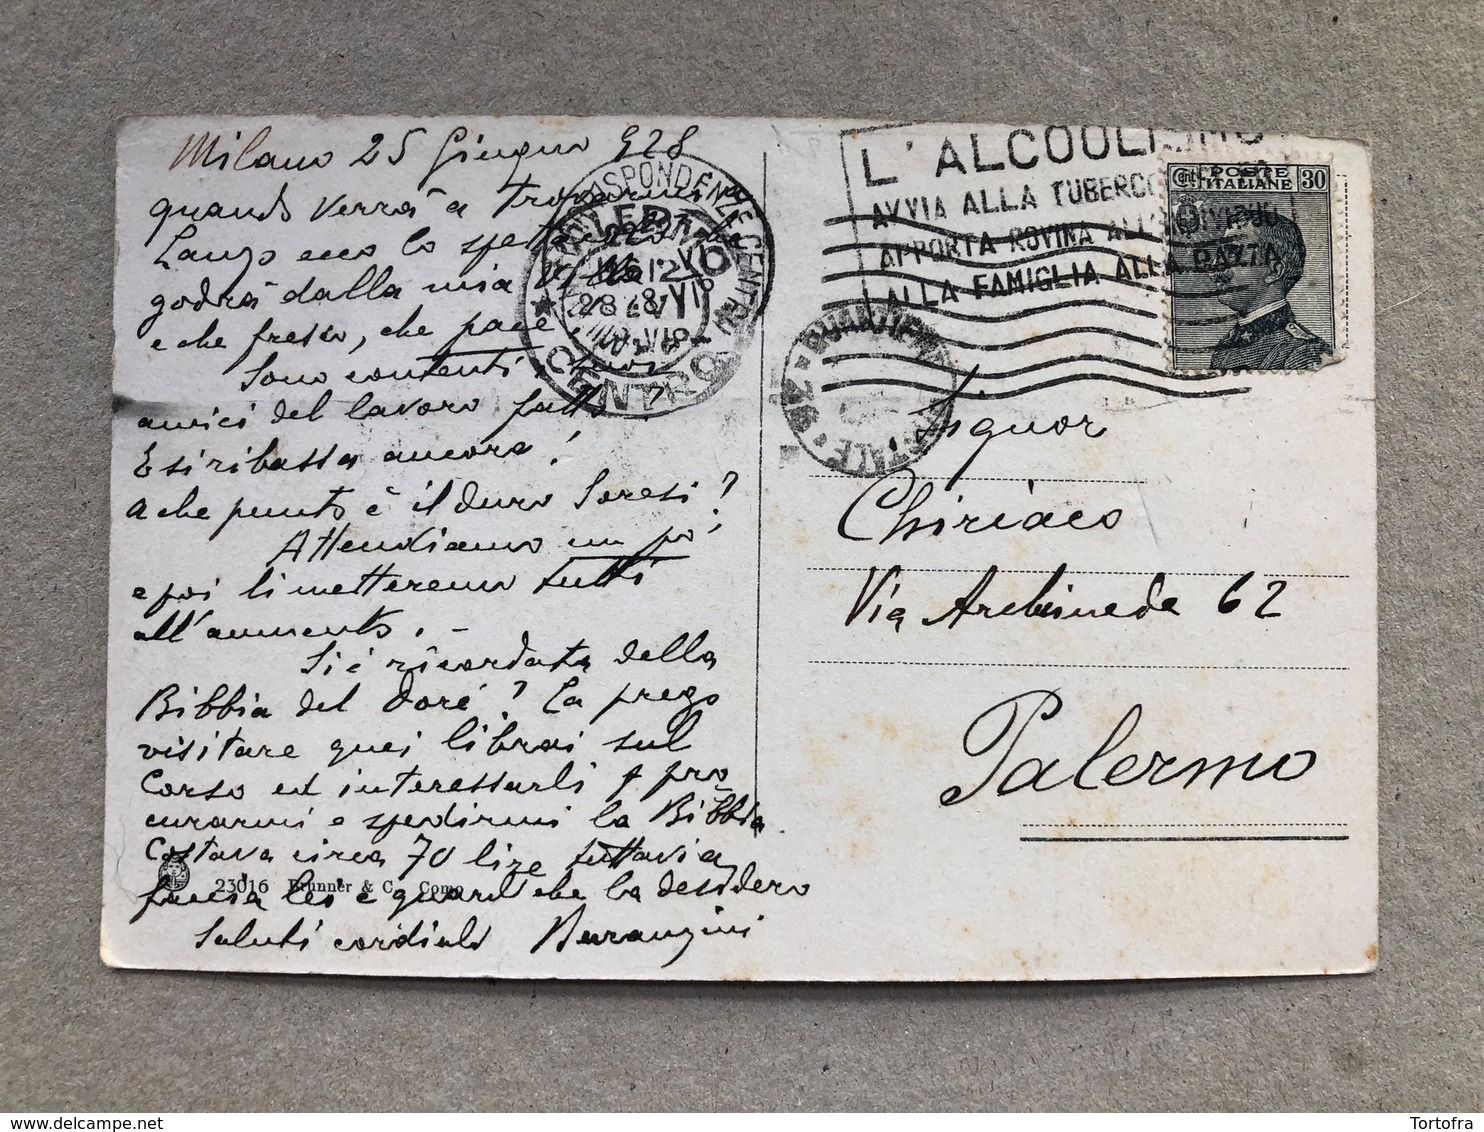 Milano 25 Giugno 928
quando verrà a trovarmi
Lanzo ecco lo
godrà dalla mia
e che fresco, che pace
Sono contenti
amici del lavoro fatto?
E si ribassa ancora!
A che punto è il duro Soresi?
Attendiamo un po'
e poi li metteremo tutti
all'aumento. -
Si è ricordata della
Bibbia del Doré? La prego
visitare quei librai sul
Corso ed interessarli a pro
curarmi e spedirmi la Bibbia
Costava circa 70 lire tuttavia
faccia lei e guardi che la desidero
Saluti cordiali
23016 Brunner & C. Como
CORRISPONDENZE
PALERMO
CENTRO
L'ALCOOLISMO
AVVIA ALLA
APPORTA ROVINA ALL'INDIVIDUO
ALLA FAMIGLIA ALLA RAZZA
Cent. POSTE ITALIANE 30
Signor
Chiriaco
Via Archimede 62
Palermo
Tortofra